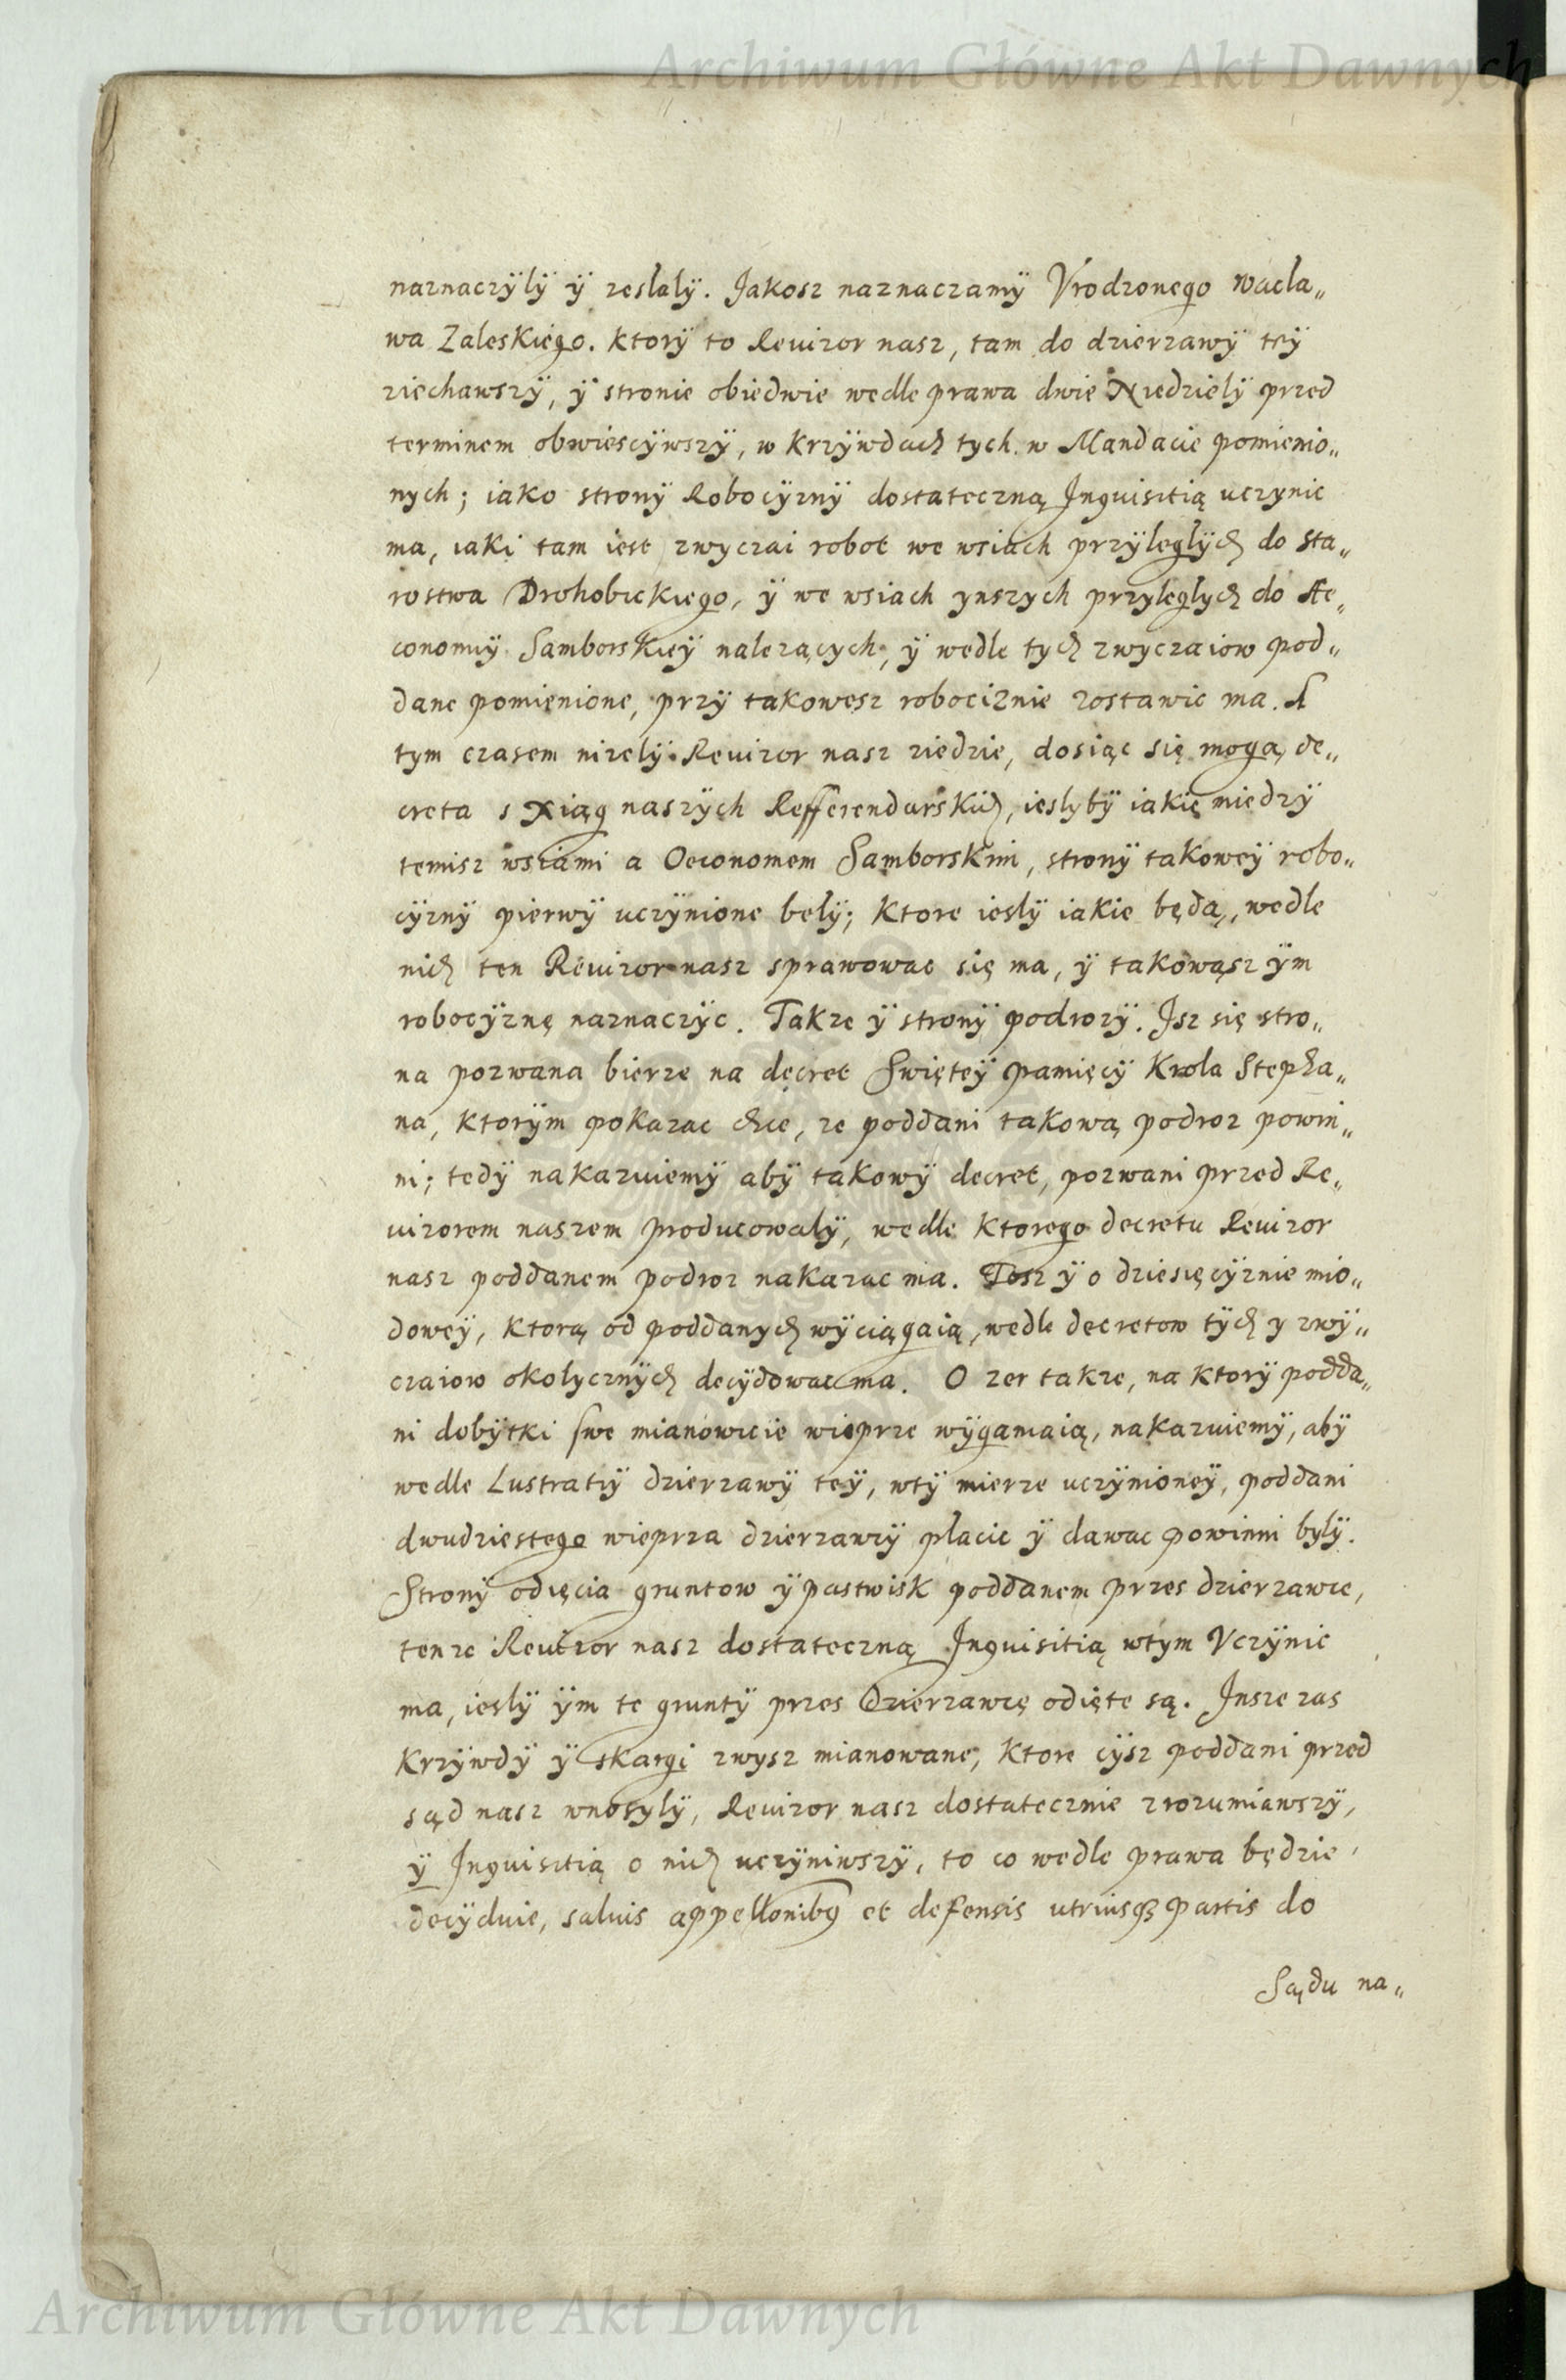 Archiwum Główne Akt Dawnych
naznaczÿlÿ ÿ zeslalÿ. Jakosz naznaczamÿ Vrodzonego Wacla„
wa Zaleskiego. ktorÿ to Reuizor nasz, tam do dzierzawÿ teÿ
ziechawszÿ, ÿ stronie obiedwie wedle prawa dwie Niedzielÿ przed
terminem obwiescÿwszÿ, w krzÿwdach tych w Mandacie pomienio„
nych; iako stronÿ Robocÿznÿ dostateczną Inquisitią uczynic
ma, iaki tam iest zwyczai robot we wsiach przÿległÿch do sta„
rostwa Drohobickiego, ÿ we wsiach ynszych przyległych do Ae„
conomiÿ Samborskieÿ nalezących, ÿ wedle tych zwyczaiow pod„
dane pomienione, przÿ takowesz robociznie zostawic ma. A
tym czasem nizelÿ Reuizor nasz ziedzie, dosiąc się mogą de„
creta s Xiąg naszÿch Refferendarskich, ieslybÿ iakie miedzÿ
temisz wsiami a Oeconomem Samborskim, stronÿ takoweÿ robo„
cÿznÿ pierwÿ uczÿnione belÿ; ktore ieslÿ iakie będą, wedle
nich ten Reuizor nasz sprawowac się ma, ÿ takowąsz ÿm
robocÿznę naznaczÿc. Takze ÿ stronÿ podrozÿ. Isz się stro„
na pozwana bierze na decret Swięteÿ pamięcÿ Krola Stepha„
na, ktorÿm pokazac chce, ze poddani takową podroz powin„
ni; tedÿ nakazuiemÿ abÿ takowÿ decret, pozwani przed Re„
uizorem naszem producowalÿ, wedle ktorego decretu Reuizor
nasz poddanem podroz nakazac ma. Tosz ÿ o dziesięcÿznie mio„
doweÿ, ktorą od poddanych wÿciągaią, wedle decretow tÿch y zwÿ„
czaiow okolycznÿch decÿdowac ma. O zer takze, na ktorÿ podda„
ni dobÿtki swe mianowicie wieprze wÿganiaią, nakazuiemÿ, abÿ
wedle Lustratiÿ dzierzawÿ teÿ, wtÿ mierze uczÿnioneÿ, poddani
dwudziestego wieprza dzierzawcÿ placic ÿ dawac powinni bylÿ.
Stronÿ odięcia gruntow ÿ pastwisk poddanem przes dzierzawce,
tenze Reuizor nasz dostateczną Inquisitią wtym Vczÿnic
ma, ieslÿ ÿm te gruntÿ przes dzierzawcę odięte są. Insze zas
krzÿwdÿ ÿ skargi zwysz mianowane, ktore cÿsz poddani przed
sąd nasz wnosylÿ, Reuizor nasz dostatecznie zrozumiawszÿ,
ÿ Inquisitią o nich uczÿniwszÿ, to co wedle prawa będzie
decÿduie, saluis appellonibq et defensis utriusq partis do
Sądu na„
Archiwum Główne Akt Dawnych